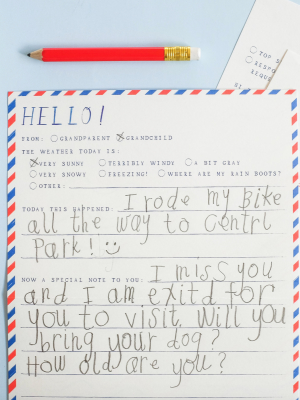 HELLO!
FROM: GRANDPARENT GRANDCHILD
THE WEATHER TODAY IS:
VERY SUNNY TERRIBLY WINDY A BIT GRAY
VERY SNOWY FREEZING! WHERE ARE MY RAIN BOOTS?
OTHER:
TODAY THIS HAPPENED: I rode my Bike
all the way to Centrl
Park!
NOW A SPECIAL NOTE TO YOU: I miss you
and I am exitd for
you to visit. Will you
bring your dog?
How old are you?
FOR